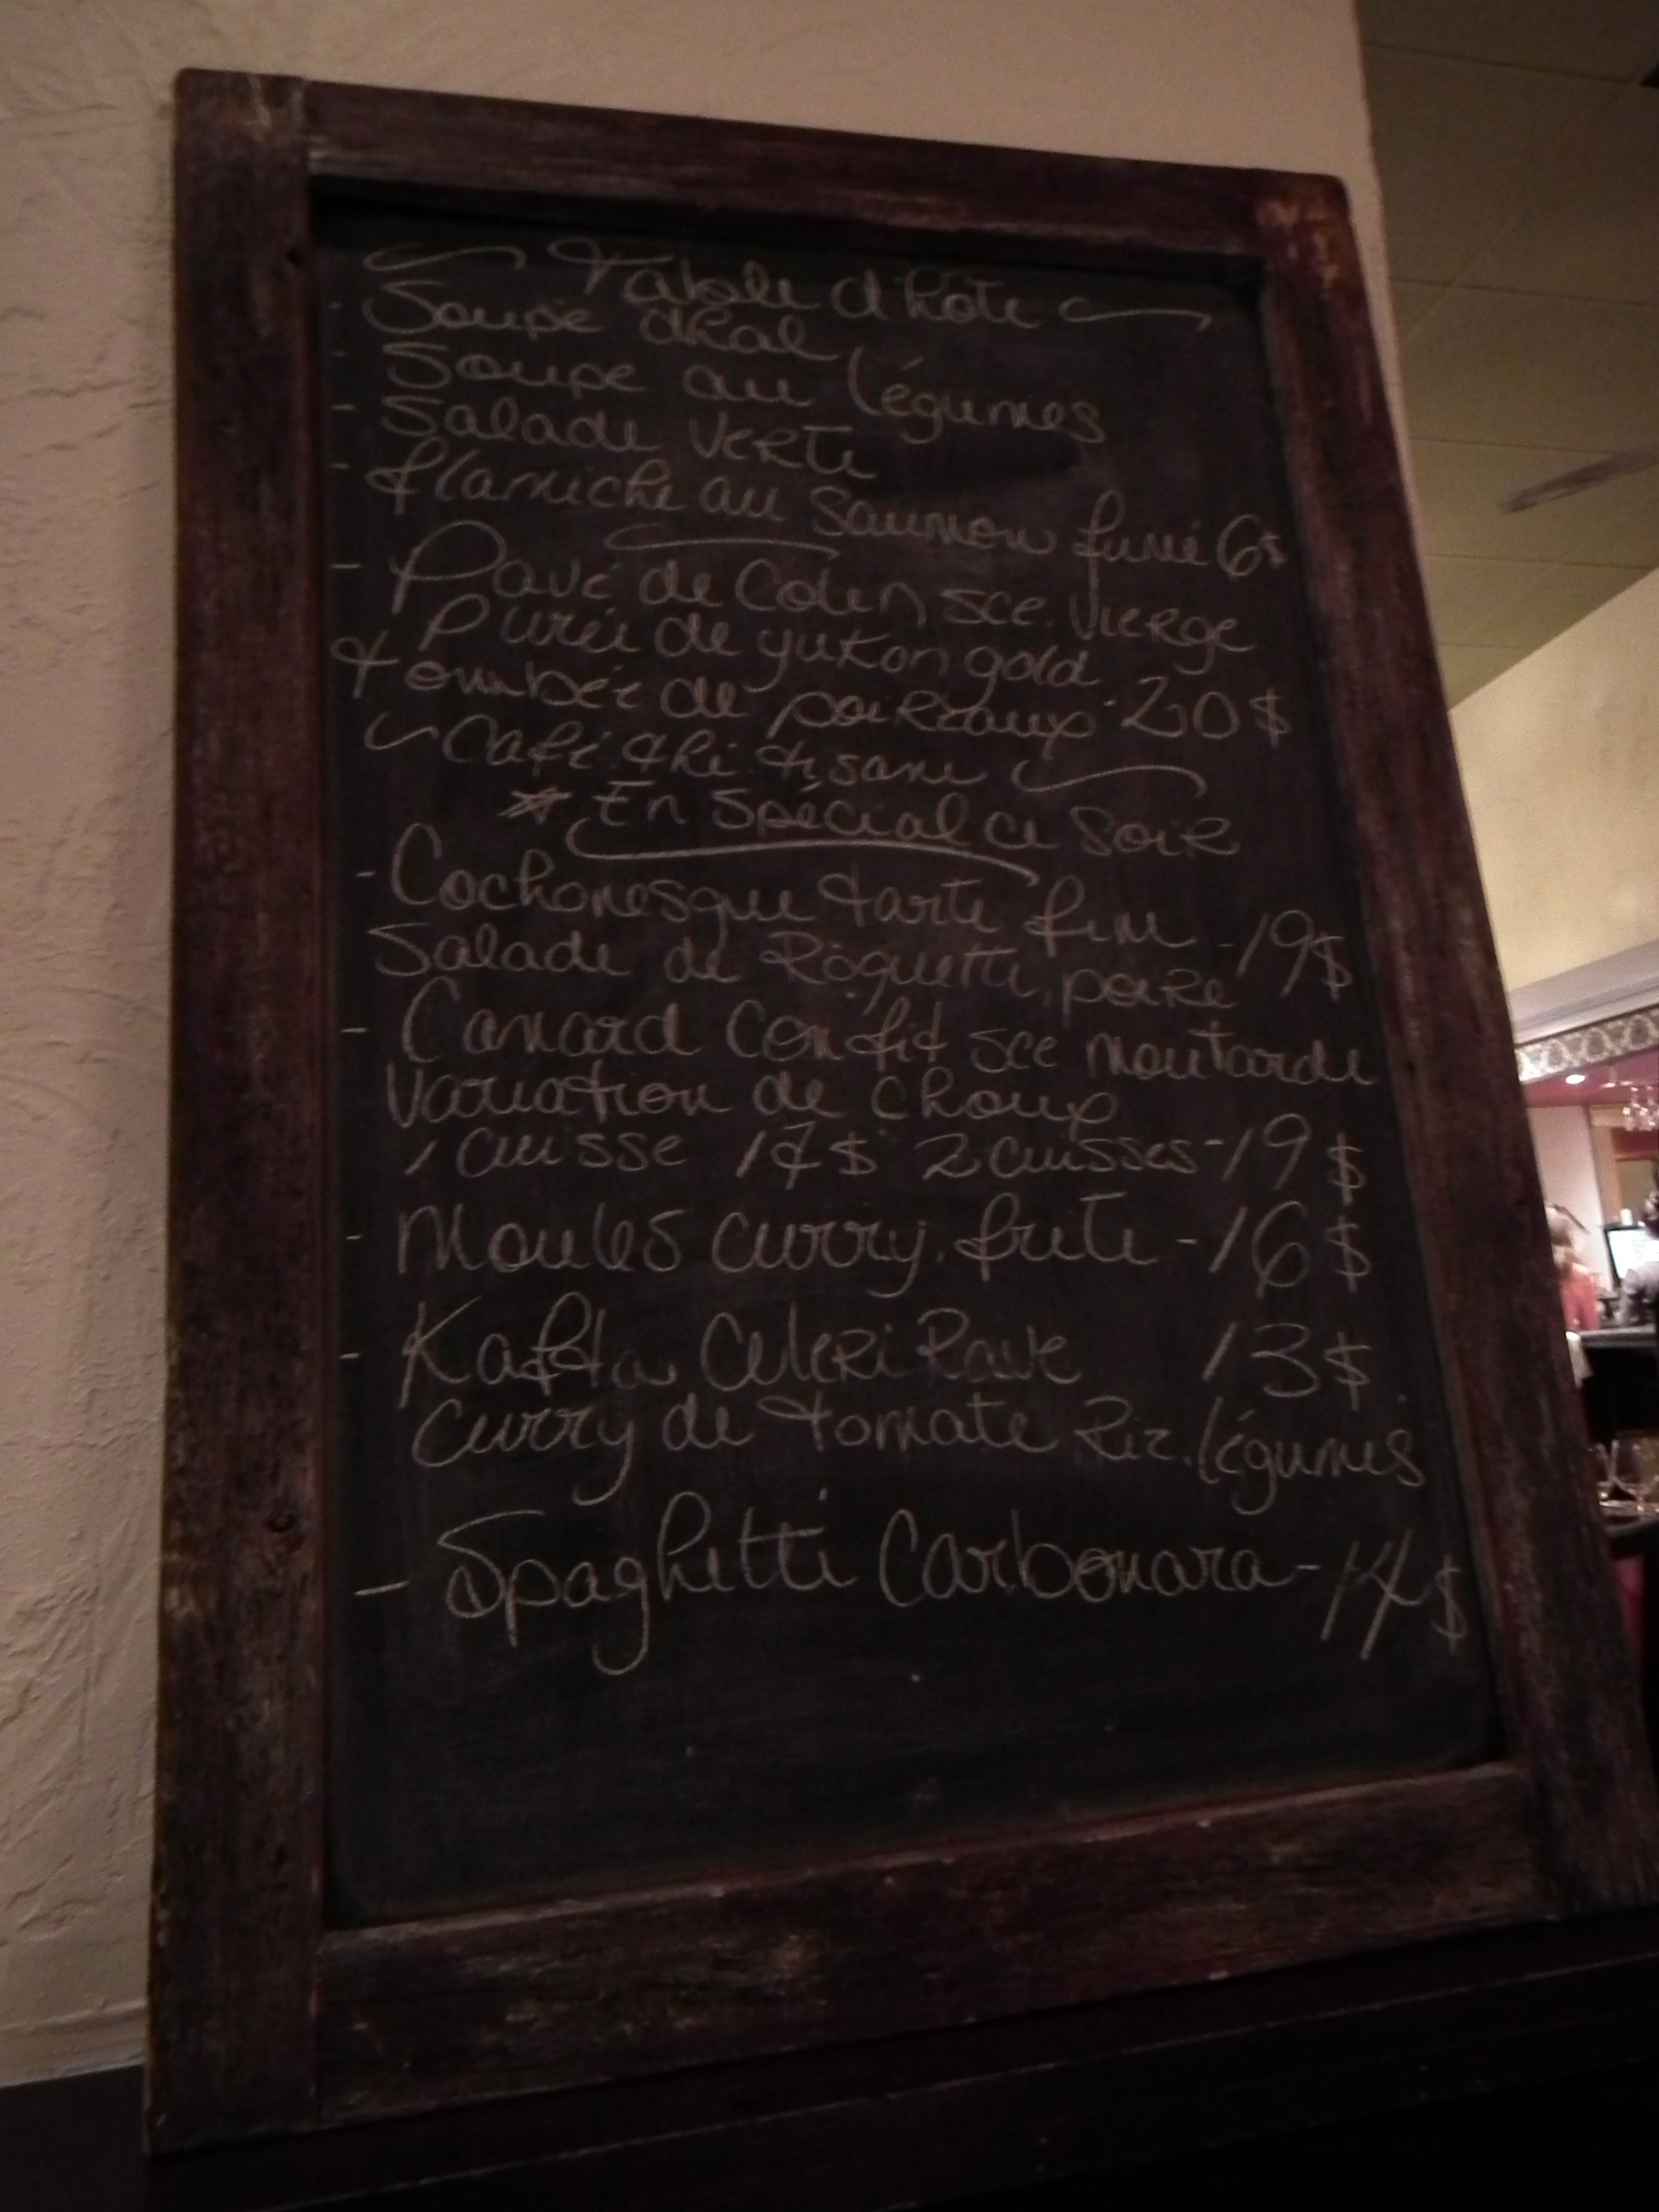 Table d'hôte
- Soupe dhal
- Soupe au légumes
- Salade verte
- flamiche au saumon fumé 6$
- Pavé de Colin sce. Vierge
Purée de yukon gold
tombée de poireaux 20$
Café thé tisane
En Spécial ce Soir
- Cochonesque tarte fine -19$
Salade de Roquette, poire
- Canard Confit sce moutarde
Variation de choux
1 cuisse 17$ 2 cuisses -19$
- Moules curry. frite -16$
- Kafta Céleri Rave 13$
curry de tomate Riz. légumes
- Spaghetti Carbonara -14$